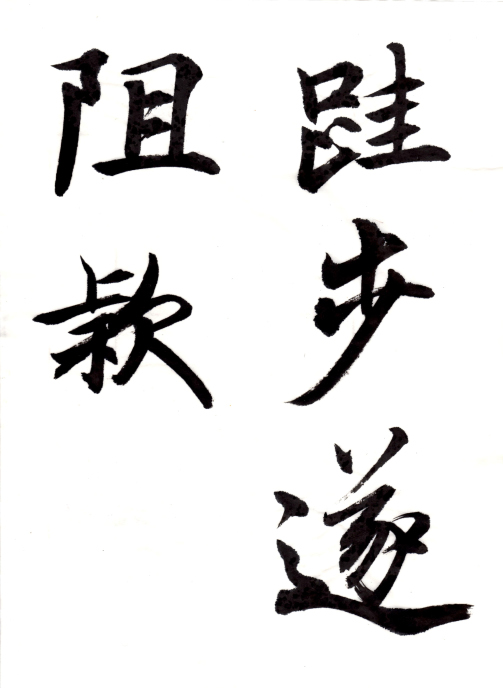 跬步遂
阻欵